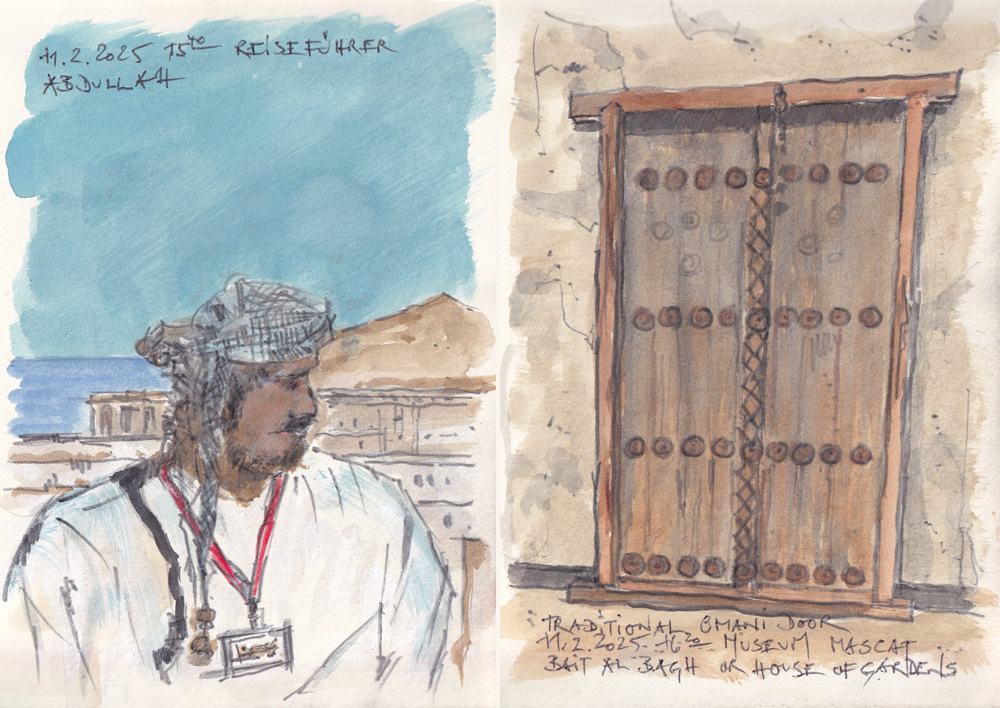 11.2.2025 15²⁰ REISEFÜHRER
ABDULLAH
TRADITIONAL OMANI DOOR
11.2.2025 16²⁰ MUSEUM MASCAT
BAIT AL BAGH OR HOUSE OF GARDENS